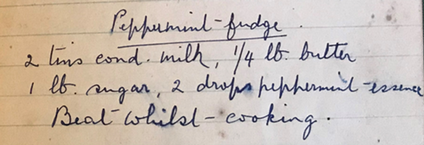 Peppermint-fudge.
2 tins cond. milk, 1/4 lb. butter
1 lb. sugar, 2 drops peppermint-essence
Beat whilst-cooking.